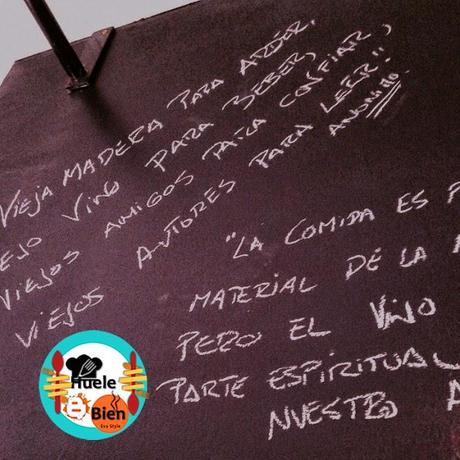 VIEJA MADERA PARA ARDER,
VINO PARA BEBER,
VIEJOS AMIGOS PARA CONFIAR,
VIEJOS AUTORES PARA LEER!!
ANONIMO.
"LA COMIDA ES
MATERIAL DE LA
PERO EL VINO
PARTE ESPIRITUAL
NUESTRO
Huele
Bien
Eva Style